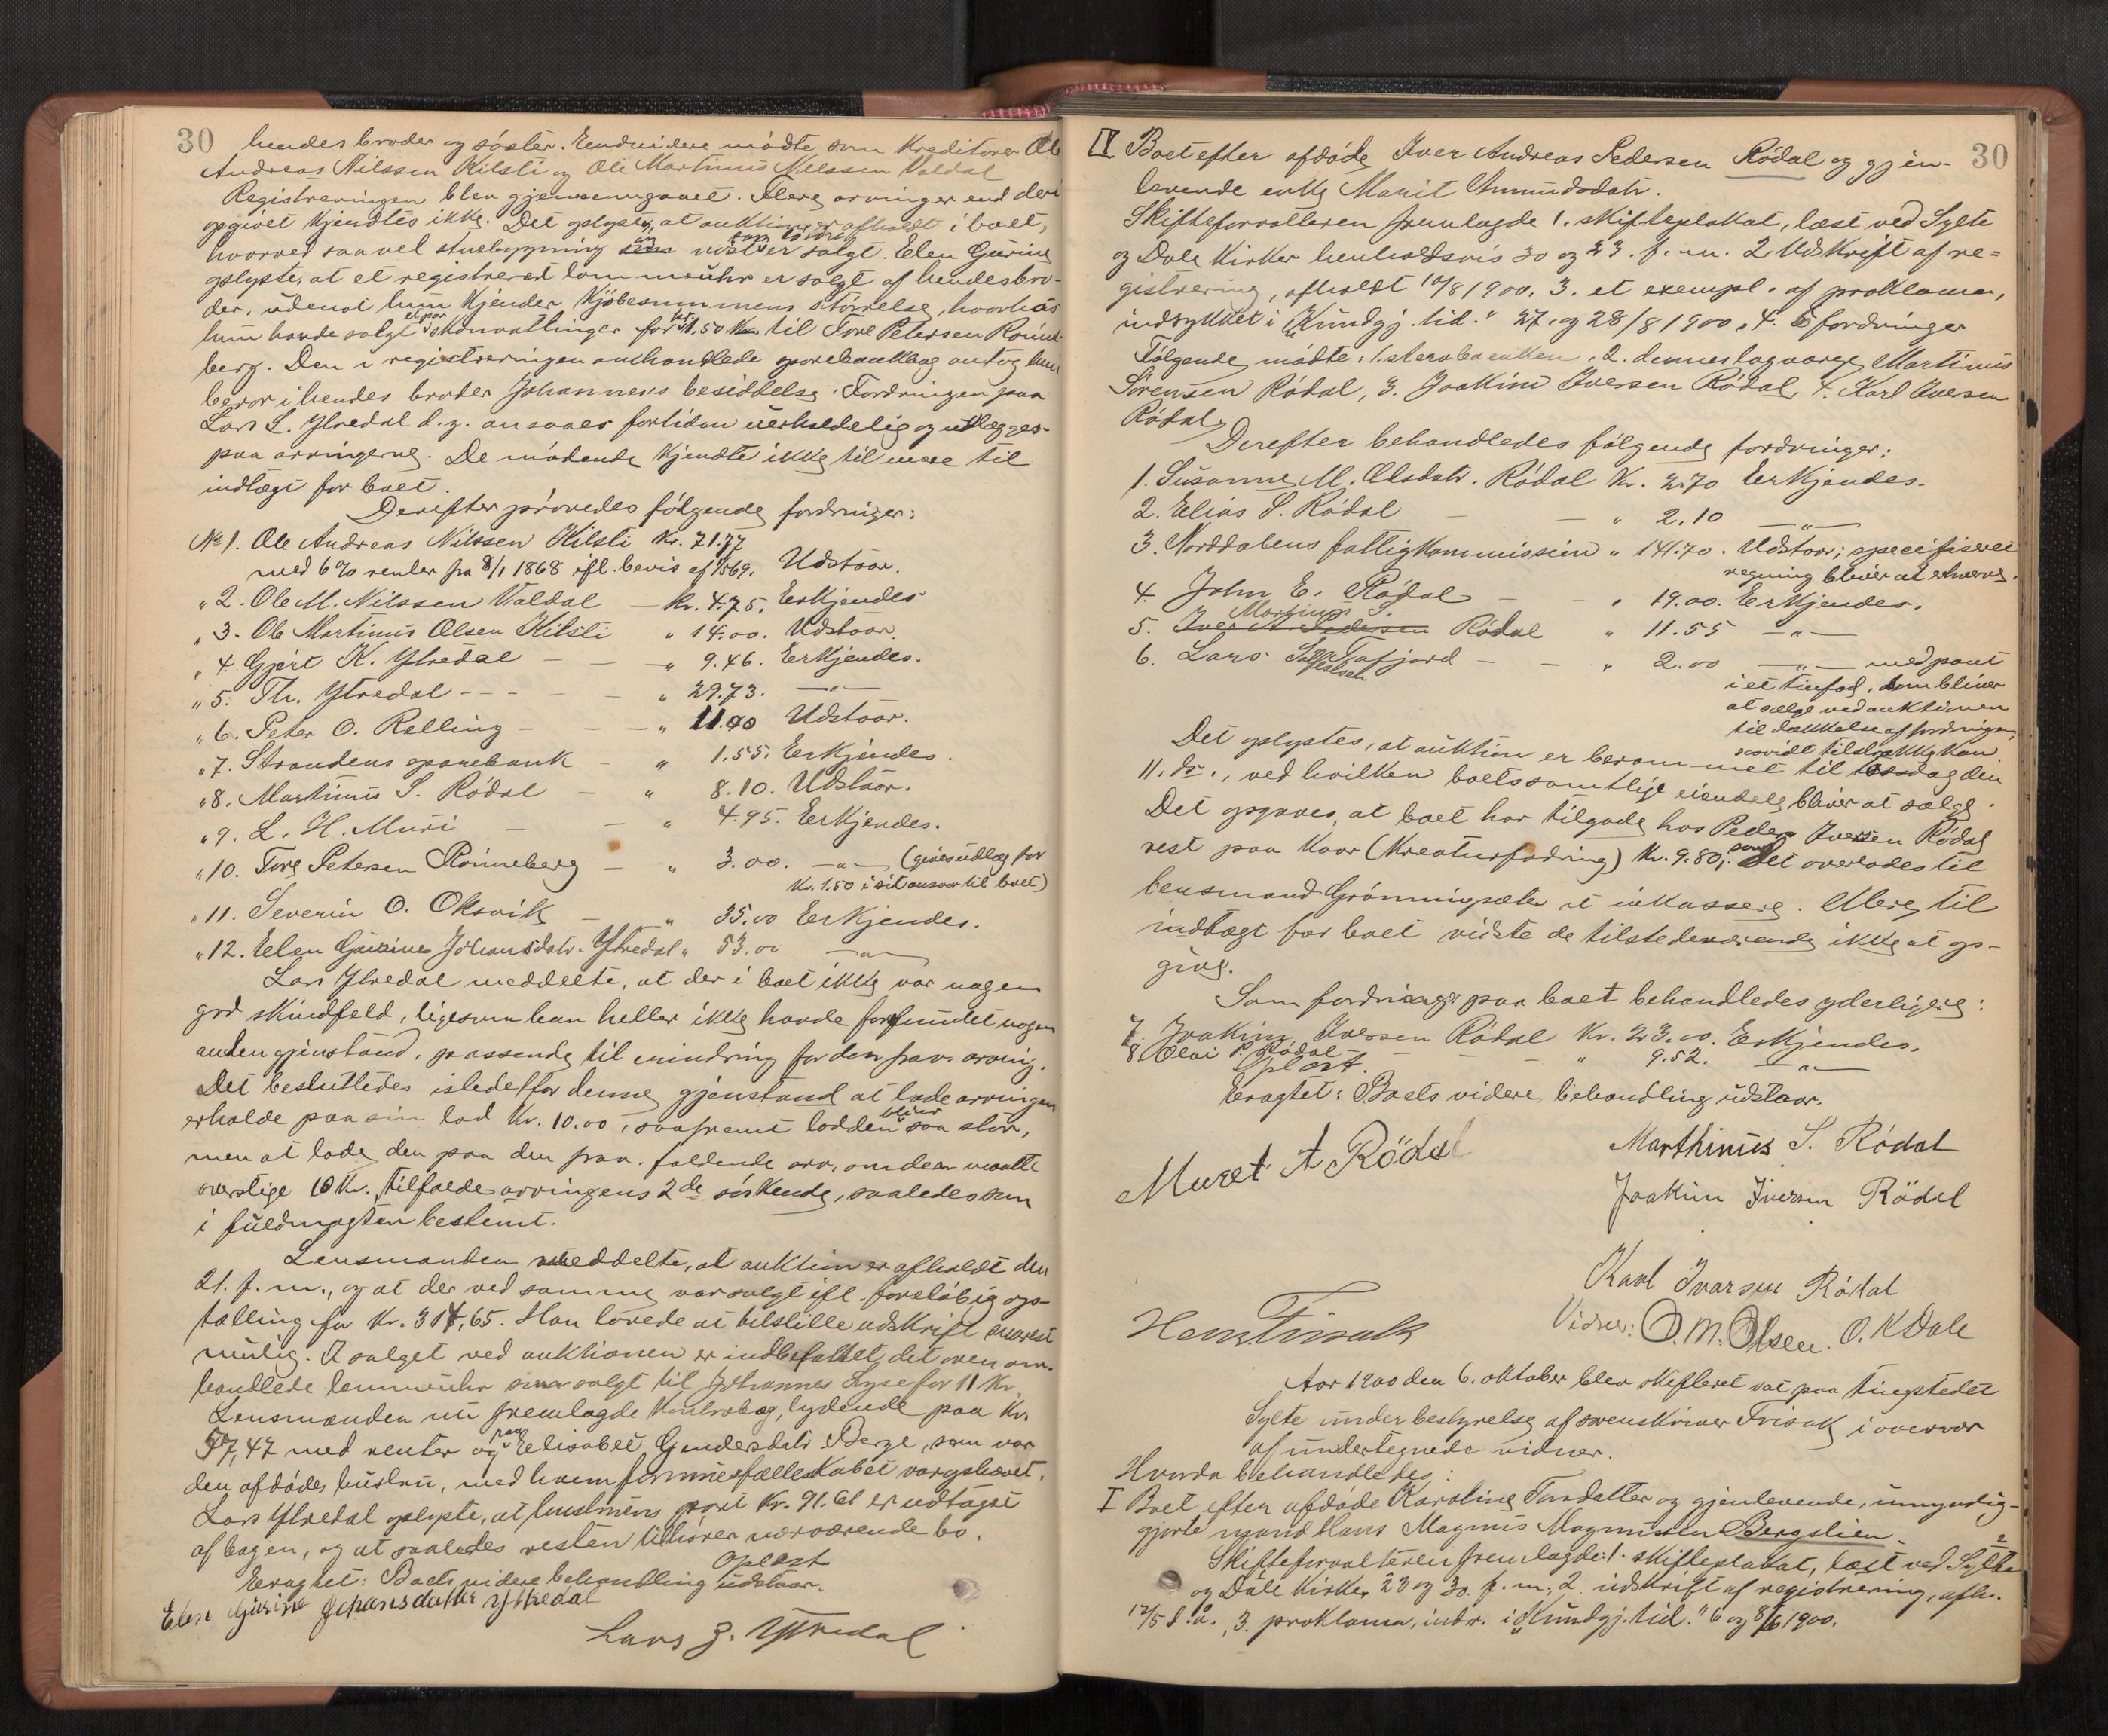 30
hendes broder og søster. Endvidere mødte som kreditorer Ole
Andreas Nilssen Kilsti og Ole Martinus Nilssen Valdal
Registreringen blev gjennemgaaet. Flere arvinger end deri
opgivet kjendtes ikke. Det oplystes, at auktion er afholdt i boet,
hvorved saavel stuebygning som løsøre er solgt. Elen Gurine
oplyste, at et registreret lommeuhr er solgt af hendes bro-
der, uden at hun kjender kjøbesummens størrelse, hvorhos
hun havde solgt et par skovvottinger for kr. 1.50 til Tore Petersen Rønne-
berg. Den i registreringen omhandlede sparebankbog antog hun
beror i hendes broder Johannes's besiddelse. Fordringen paa
Lars L. Ytredal d.y. ansaaes for tiden uerholdelig og udlægges
paa arvingerne. De mødende kjendte ikke til mere til
indtægt for boet.
Derefter prøvedes følgende fordringer:
No 1. Ole Andreas Nilssen Kilsti kr. 71.77
med 6 % renter fra 8/1 1868 ifl. bevis af 1869. Udstaar.
" 2. Ole M. Nilssen Valdal — kr. 4.75. Erkjendes
" 3. Ole Martinus Olsen Kilsti " 14.00. Udstaar.
" 4. Gjert K. Ytredal — — " 9.46. Erkjendes.
" 5. Th. Ytredal - - - — — " 29.73. —"—
" 6. Peter O. Relling — — — " 11.00 Udstaar.
" 7. Strandens sparebank — " 1.55. Erkjendes.
" 8. Martinus S. Rødal — " 8.10. Udstaar.
" 9. L. H. Muri — — " 4.95. Erkjendes.
" 10. Tore Petersen Rønneberg — " 3.00. —"— (gives udlæg for
kr. 1.50 i sit ansvar til boet)
" 11. Severin O. Oksvik — " 35.00 Erkjendes.
" 12. Elen Gurine Johansdatr. Ytredal " 53.00 —"—
Lars Ytredal meddelte, at der i boet ikke var nogen
god skindfeld, ligesom han heller ikke havde forefundet nogen
anden gjenstand, passende til mindring for den frav. arving.
Det besluttedes istedetfor denne gjenstand at lade arvingen
erholde paa sin lod kr. 10.00, saafremt lodden bliver saa stor,
men at lade den paa den frav. faldende arv, om den maatte
overstige 10 kr., tilfalde arvingens 2de søskende, saaledes som
i fuldmagten bestemt.
Lensmanden meddelte, at auktion er afholdt den
21. f. m., og at der ved samme var solgt ifl. foreløbig op-
tælling for kr. 314,65. Han lovede at tilstille udskrift snarest
mulig. I salget ved auktionen er indbefattet det oven om-
handlede lommeuhr solgt til Johannes Lyse for 11 kr.
Lensmanden nu fremlagde kontrabog, lydende paa kr.
57,47 med renter og paa Elisabet Gjendersdatr Berge, som var
den afdødes hustru, med hvem formuesfællesskabet var ophævet.
Lars Ytredal oplyste, at hustruens part kr. 91.61 er udtaget
af bogen, og at saaledes resten tilhører nærværende bo.
Oplæst
Eragtet: Boets videre behandling udstaar.
Elen Gurine Johansdatter Yttredal
Lars J. Yttredal
30
IV Boet efter afdøde Iver Andreas Pedersen Rødal og gjen-
levende enke Marit Amundsdatr.
Skifteforvalteren fremlagde 1. skifteplakat, læst ved Sylte
og Dale kirker henholdsvis 30 og 23. f. m. 2. Udskrift af re-
gistrering, afholdt 10/8 1900. 3. et exempl. af proklama,
indrykket i "Kundgj. tid." 27. og 28/8 1900. 4. 6 fordringer
Følgende mødte: 1. sterboenken, 2. dennes lagværge Martinus
Sørensen Rødal, 3. Joakim Iversen Rødal, 4. Karl Iversen
Rødal,
Derefter behandledes følgende fordringer:
1. Susanne M. Olsdatr. Rødal kr. 2.70 Erkjendes.
2. Elias S. Rødal — — " 2.10 —"—
3. Norddalens fattigkommission " 141.70. Udstaar; specificeret
regning bliver at erhverve.
4. John E. Rødal — — " 19.00. Erkjendes.
Martinus S.
5. Iver A. Pedersen Rødal " 11.55 —"—
6. Lars Tafjord — — " 2.00 —"— med pant
i et tinfad, som bliver
at sælge ved auktionen
til dækkelse af fordringen,
saavidt tilstrække kan.
Det oplystes, at auktion er berammet til torsdag den
11. ds., ved hvilken boets samtlige eiendele bliver at sælge.
Det opgaves, at boet har tilgode hos Peder Iversen Rødal
rest paa kaar (kreaturfodring) kr. 9.80, som det overlodes til
lensmand Grønningsæter at inkassere. Mere til
indtægt for boet vidste de tilstedeværende ikke at op-
give.
Som fordringer paa boet behandledes yderligere:
7. Joakim Iversen Rødal kr. 23.00. Erkjendes.
8. Olai P. Rødal — — " 9.52. —"—
Oplæst.
Eragtet: Boets videre behandling udstaar.
Maret A Rödal
Marthinus S. Rödal
Joakim Iversen Rödal
Karl Ivarsen Rödal
Hans Frisak
Vidner: O. M. Olsen. O. K Dale
Aar 1900 den 6. oktober blev skifteret sat paa tingstedet
Sylte under bestyrelse af sorenskriver Frisak i overvær
af undertegnede vidner.
Hvorda behandledes:
I Boet efter afdøde Karoline Tvedatter og gjenlevende, umyndig-
gjorte mand Hans Magnus Magnussen Bergslien.
Skifteforvalteren fremlagde: 1. skifteplakat, læst ved Sylte
og Dale kirker 23 og 30. f. m., 2. udskrift af registrering, afh.
12/5 d. å., 3. proklama, indr. i "Kundgj. tid." 6 og 8/6 1900.